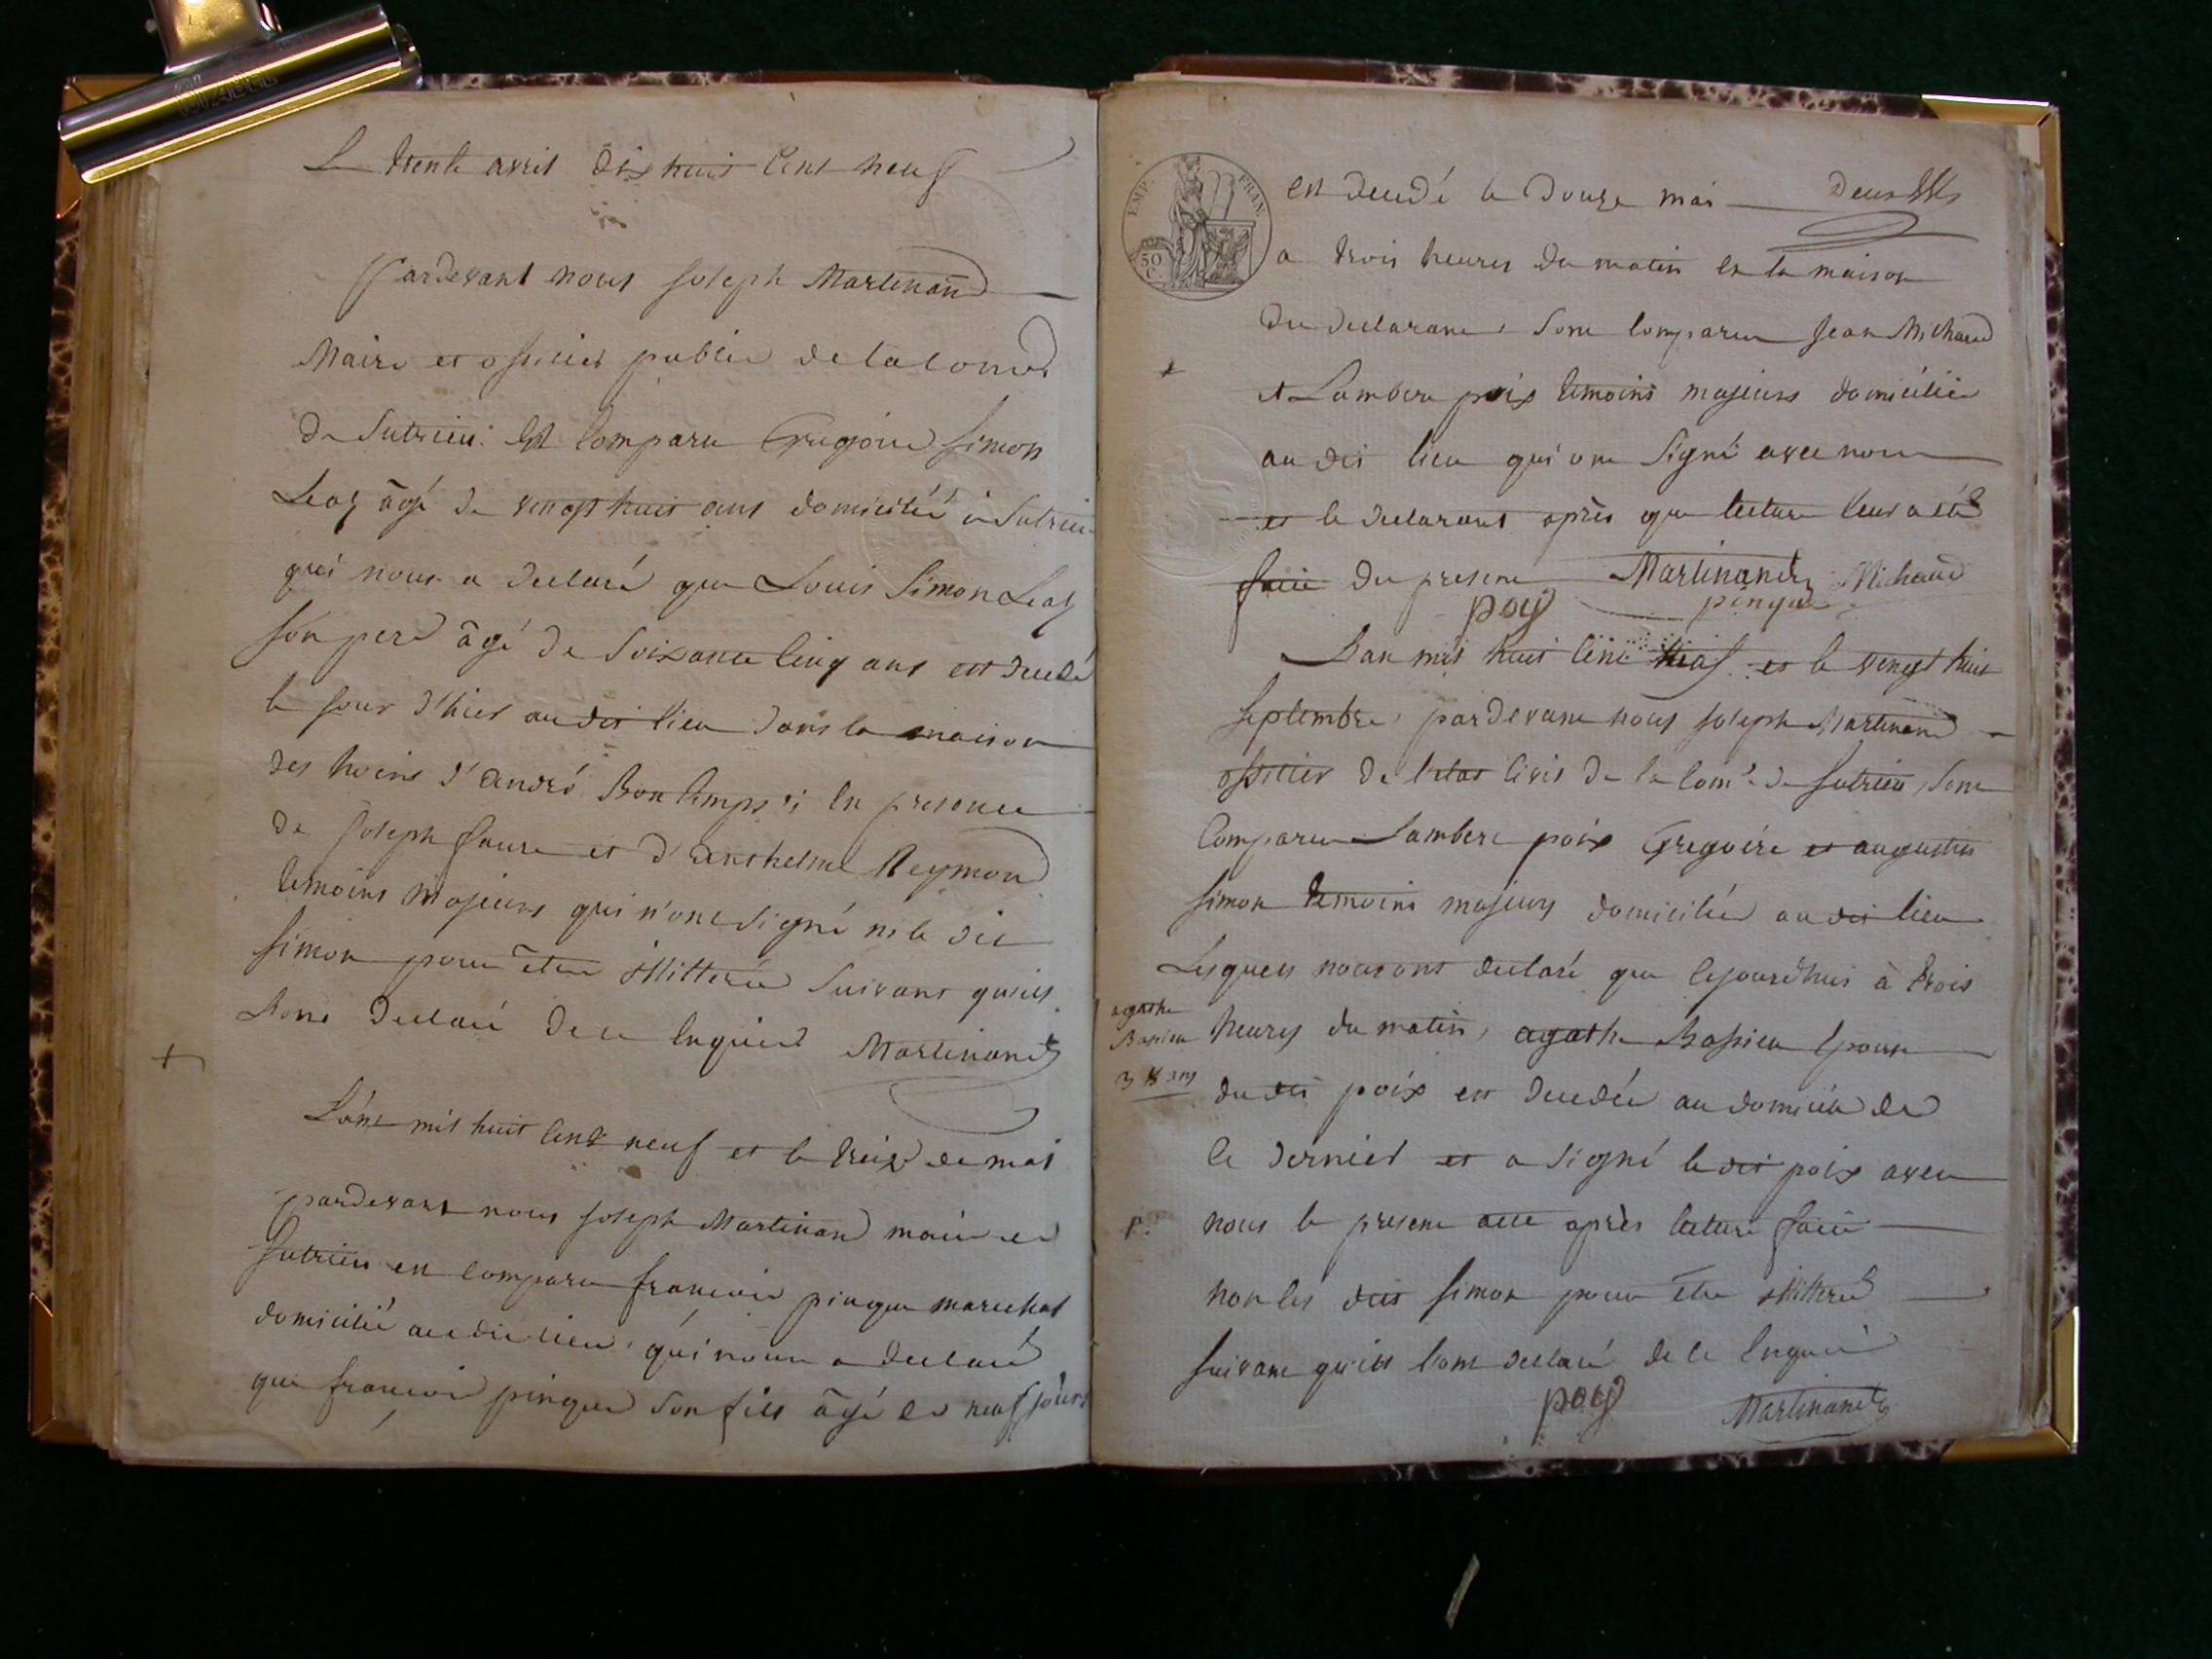 Le trente avril dix huit cent neuf
Pardevant nous joseph Martinand
Maire et officier public de la comne
de Sutrieu Est comparu Gregoire simon
Leaz âgé de vengt huit ans domicilié a Sutrieu
qui nous a declaré que Louis Simon Leaz
son pere âgé de Soixante cinq ans est decedé
le jour d'hier au dit lieu dans la maison
des hoirs d'andré Bontemps en presence
de joseph faure et d'anthelme Reymond
temoins Majeurs qui n'ont signé ni le dit
simon pour etre illitteré Suivant qu'ils
L'ont declaré de ce Enquis Martinand
L'ant mil huit cent neuf et le treize de mai
pardevant nous joseph Martinand maire de
Sutrieu est comparu francois pingue marechal
domicilié au dit lieu, qui nous a declaré
que francois pingue son fils âgé de neuf jours
EMP. FRAN.
50 C.
est decedé le Douze mai
a trois heures du matin en la maison
du declarant, sont comparu Jean Michaud
et Lambert poix temoins majeurs domicilié
au dit lieu qui ont signé avec nous
et le declarant après que lecture leur a été
faite du present Martinand Michaud
poy pingue
L'an mil huit cent neuf et le vengt huit
septembre, pardevant nous joseph Martinand
officier de l'etat civil de la come de sutrieu, sont
Comparu Lambert poix Gregoire et augustin
simon temoins majeurs domicilié au dit lieu
Lesquels nous ont declaré que cejourdhui à trois
agathe
heures du matin, agathe Bassieu epouse
Bassieu
ans
du dit poix est decedée au domicile de
ce dernier et a signé le dit poix avec
nous le present acte après lecture faite
non les dits simon pour etre illitteré
suivant qu'ils l'ont declaré de ce Enquis
poy Martinand